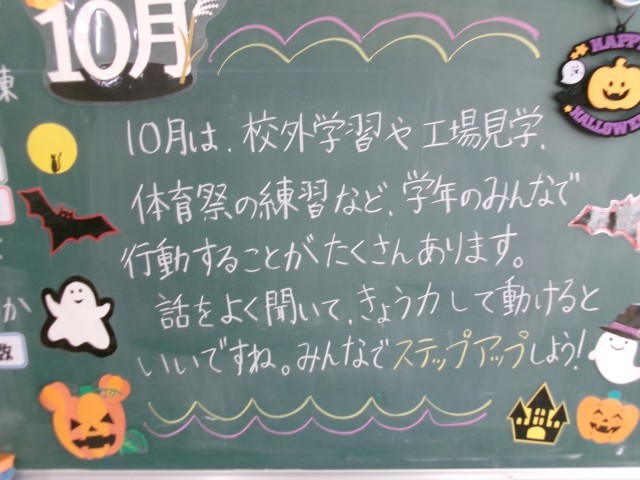 10月
HAPPY
HALLOWEEN
10月は、校外学習や工場見学、
体育祭の練習など、学年のみんなで
行動することがたくさんあります。
話をよく聞いて、きょう力して動けると
いいですね。みんなでステップアップしよう!
練
か
数